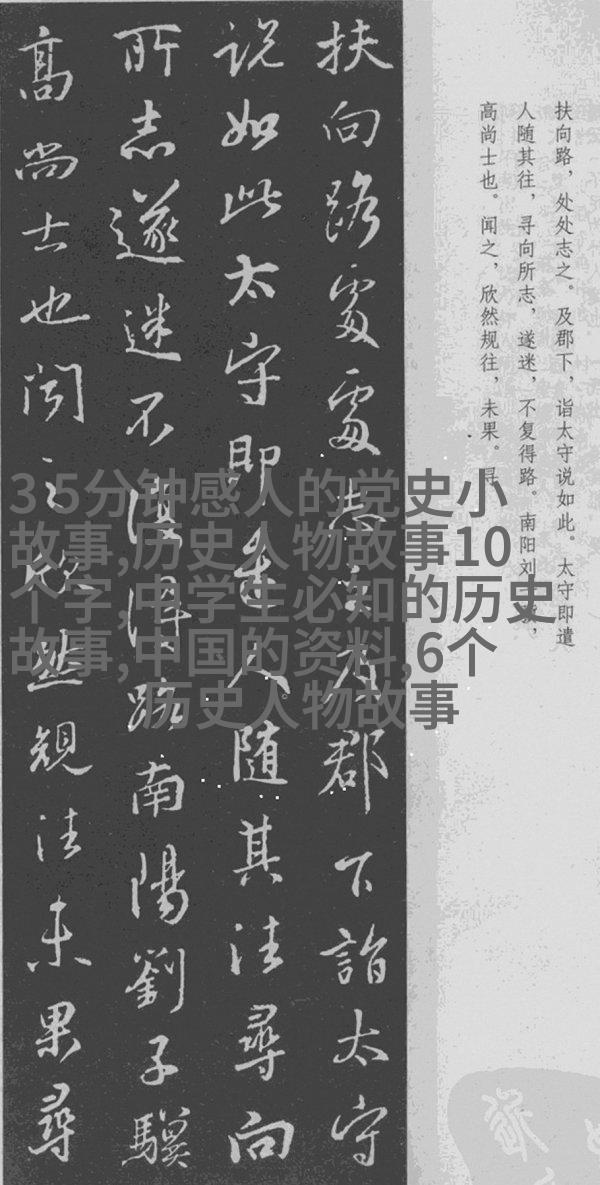 扶向路，处处志之。及郡下，诣太守说如此。太守即遣
人随其往，寻向所志，遂迷，不复得路。南阳刘子骥，
高尚士也。闻之，欣然规往，未果。寻
扶向路處處志之及郡下詣太守
説如此太守即遣人随其往尋向
所志遂迷不復得路南陽劉子驥
高尚士也闻之欣然規往未果尋
35分钟感人的党史小
故事,历史人物故事10
个字,中学生必知的历史
故事,中国的资料,6个
历史人物故事